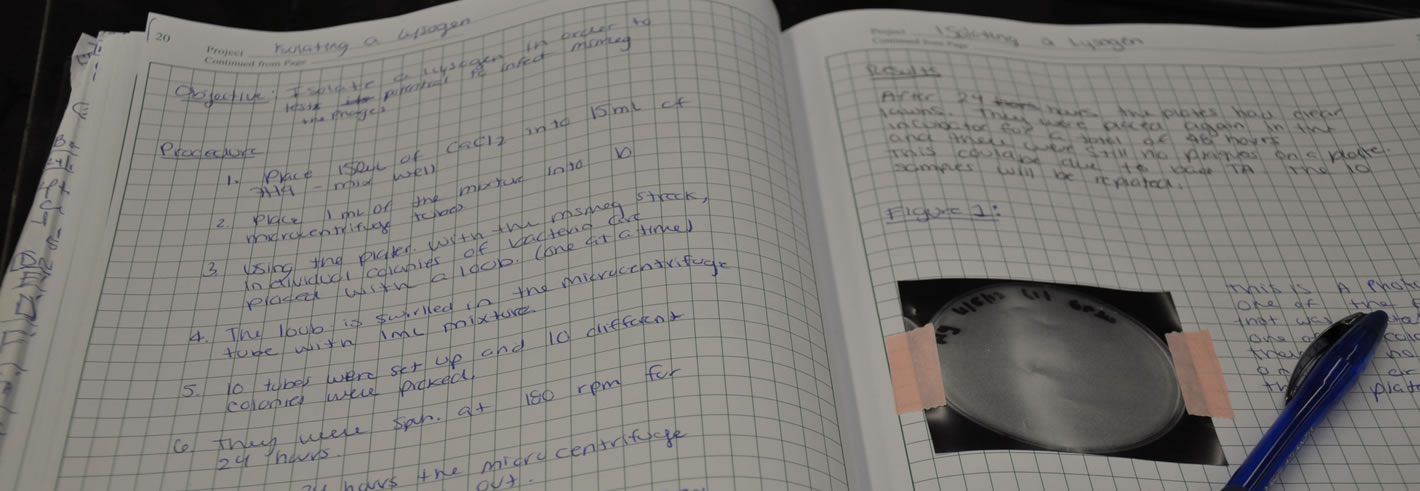 20
Project Isolating a Lysogen
Continued from Page
Objective: Isolate a lysogen in order to
test potential to infect msmeg
the phages
Procedure
1. Place 150uL of CaCl2 into 15mL of
7H9 - mix well
2. Place 1mL of the mixture into 10
microcentrifuge tubes
3. Using the plates with the msmeg streak,
individual colonies of bacteria are
placed with a loop. (one at a time)
4. The loop is swirled in the microcentrifuge
tube with 1mL mixture.
5. 10 tubes were set up and 10 different
colonies were picked.
6 They were span. at 180 rpm for
24 hours.
24 hours the microcentrifuge
out.
Project Isolating a Lysogen
Continued from Page
Results
After 24 hours the plates had clear
lawns. They were placed again in the
incubator for a total of 48 hours
and there were still no plaques on a plate.
This could be due to bad TA the 10
samples will be repeated.
Figure 1:
This is A Photo
one of the
that
one of
the
plate